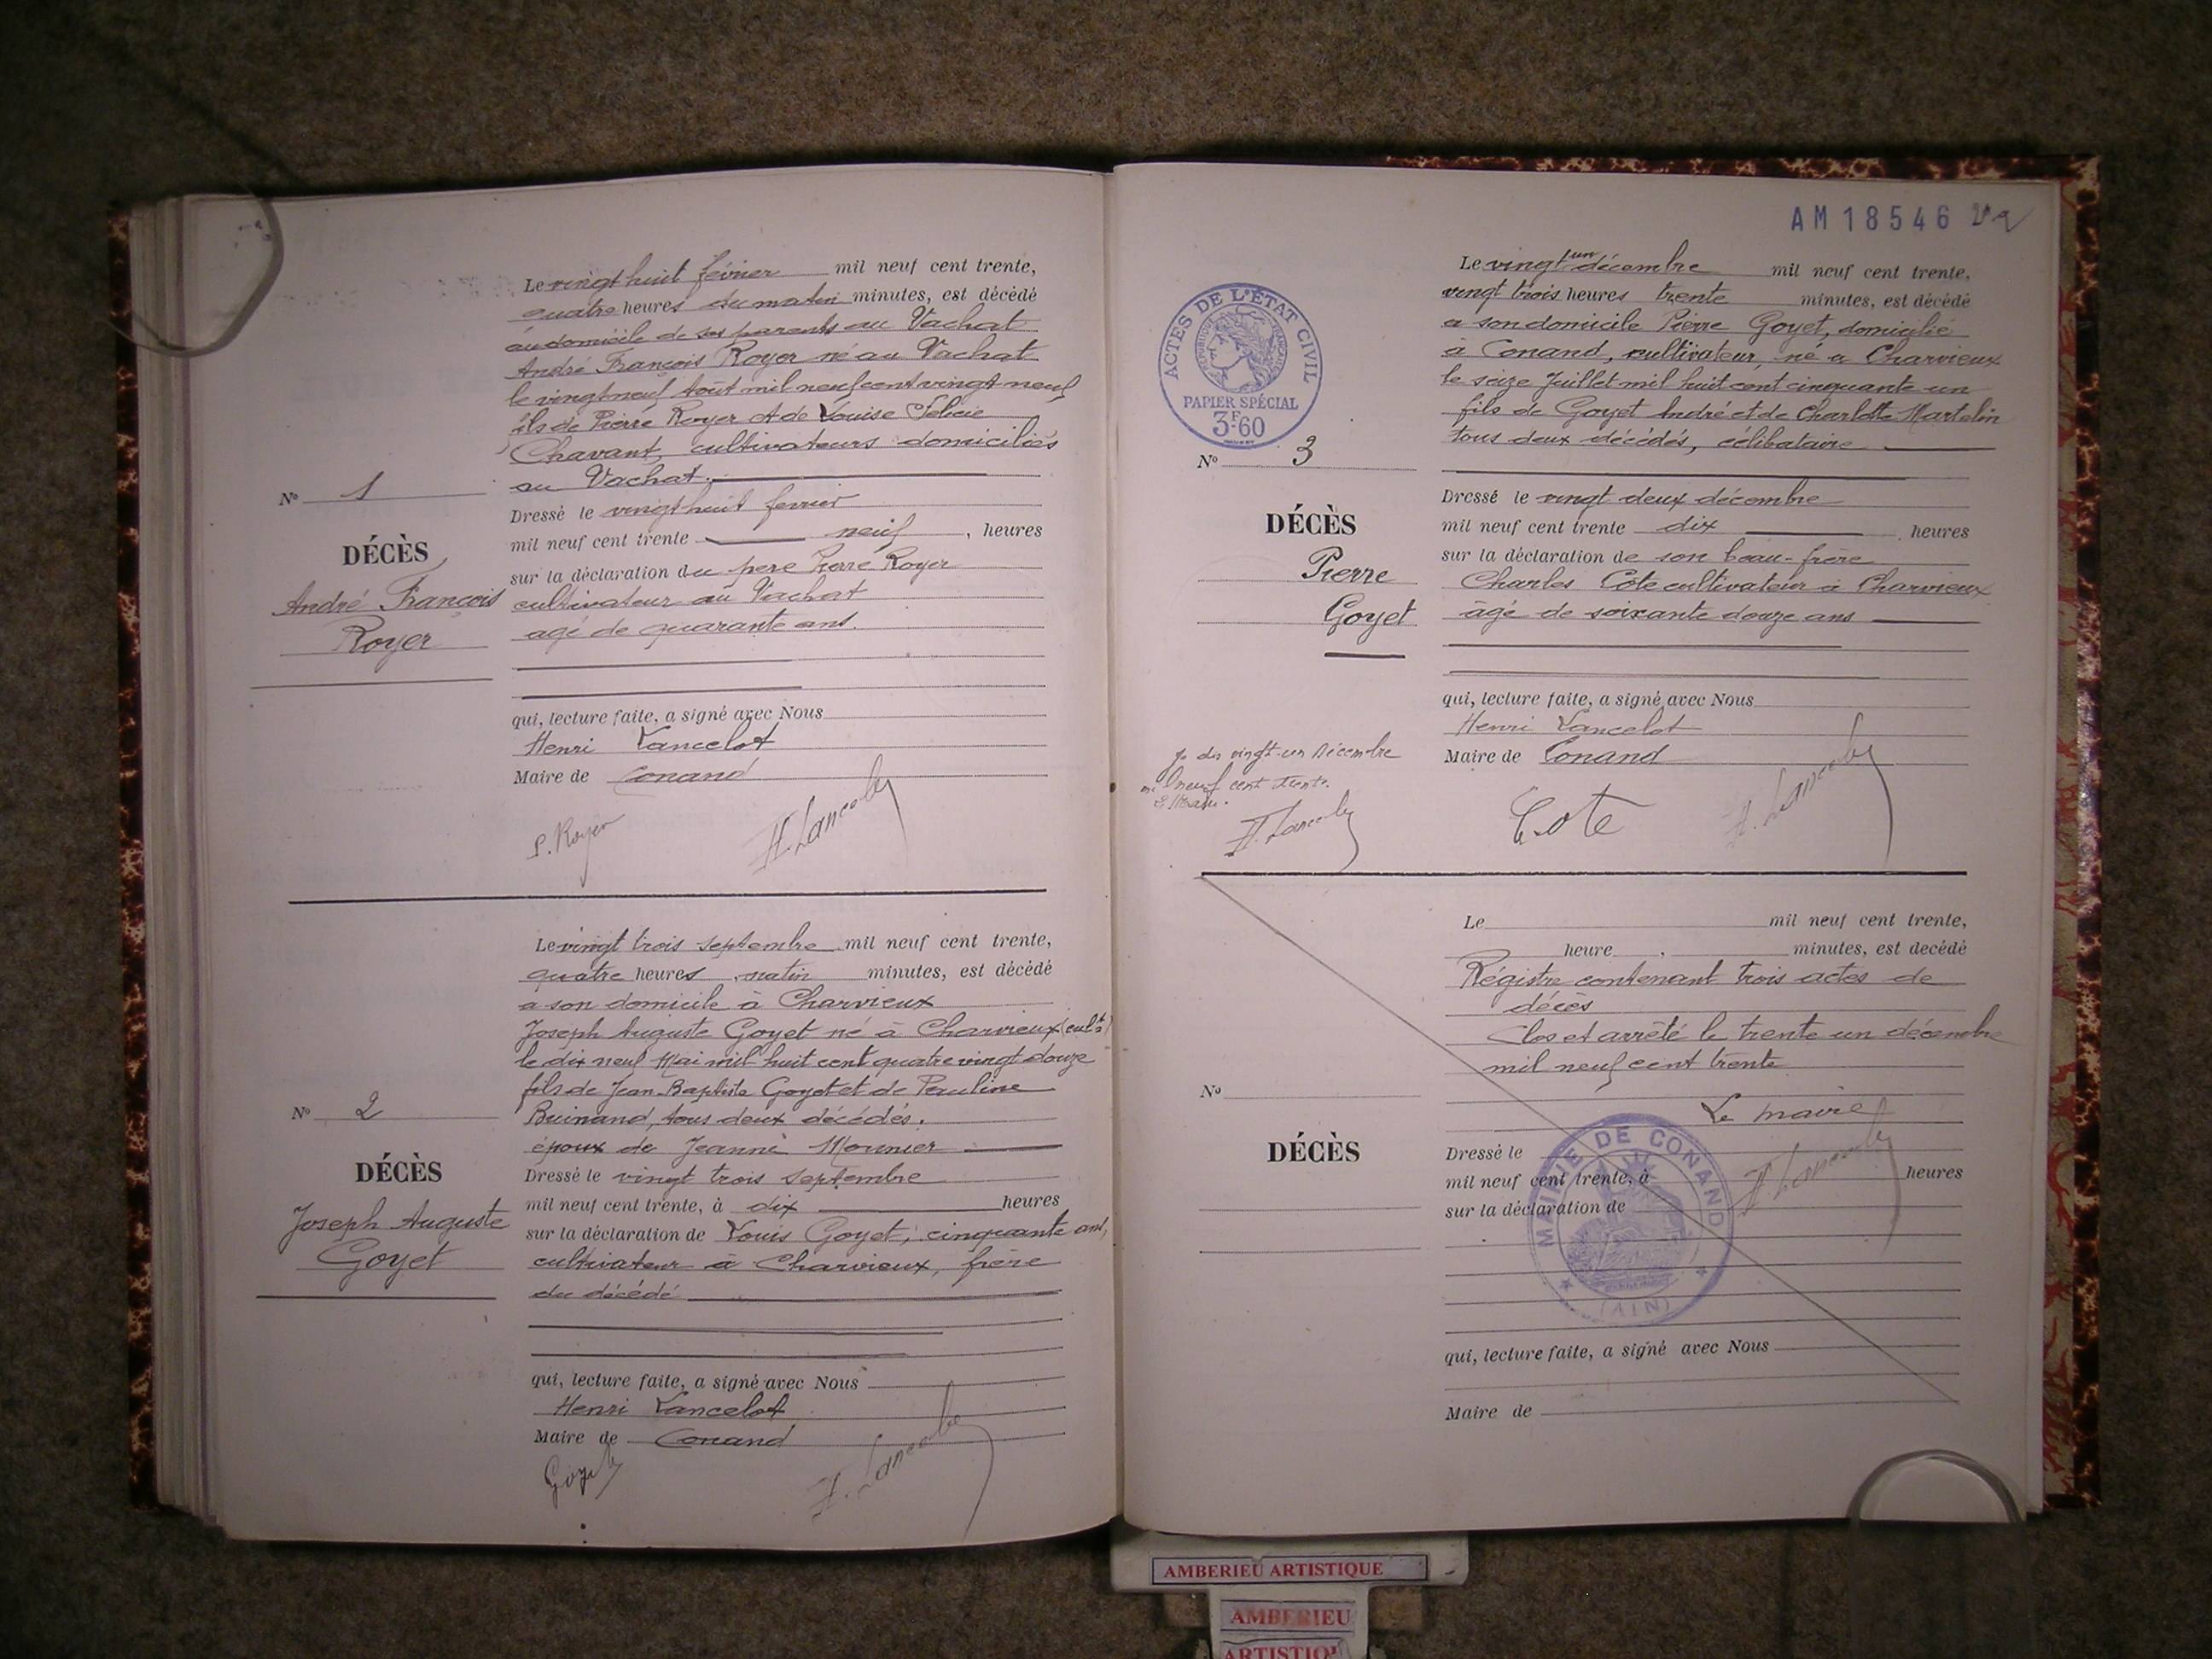 Le vingt huit février mil neuf cent trente,
quatre heures du matin minutes, est décédé
au domicile de ses parents au Vachat
André François Royer né au Vachat
le vingt neuf Août mil neuf cent vingt neuf
fils de Pierre Royer et de Louise Felicie
Chavant, cultivateurs domiciliés
au Vachat.
Nº 1
DÉCÈS
André François
Royer
Dressé le vingt huit fevrier
mil neuf cent trente neuf, heures
sur la déclaration du pere Pierre Royer
cultivateur au Vachat
agé de quarante ans.
qui, lecture faite, a signé avec Nous
Henri Lancelot
Maire de Conand
P. Royer
H. Lancelot
Le vingt trois septembre mil neuf cent trente,
quatre heures matin minutes, est décédé
a son domicile à Charvieux
Joseph Auguste Goyet né à Charvieux (cult^r)
le dix neuf Mai mil huit cent quatre vingt douze
fils de Jean-Baptiste Goyet et de Pauline
Buinand, tous deux décédés.
époux de Jeanne Mounier
Nº 2
DÉCÈS
Joseph Auguste
Goyet
Dressé le vingt trois septembre
mil neuf cent trente, à dix heures
sur la déclaration de Louis Goyet, cinquante ans,
cultivateur à Charvieux, frère
du décédé
qui, lecture faite, a signé avec Nous
Henri Lancelot
Maire de Conand
Goyet
H. Lancelot
AM 18546
ACTES DE L'ÉTAT CIVIL
RÉPUBLIQUE FRANÇAISE
PAPIER SPÉCIAL
3F60
Le vingt un décembre mil neuf cent trente,
vingt trois heures trente minutes, est décédé
a son domicile Pierre Goyet, domicilié
à Conand, cultivateur, né a Charvieux
le seize Juillet mil huit cent cinquante un
fils de Goyet André et de Charlotte Martelin
tous deux décédés, célibataire
Nº 3
DÉCÈS
Pierre
Goyet
Dressé le vingt deux décembre
mil neuf cent trente dix heures
sur la déclaration de son beau-frère
Charles Cote cultivateur à Charvieux
âgé de soixante douze ans
qui, lecture faite, a signé avec Nous
Henri Lancelot
Maire de Conand
vingt-un Décembre
mil neuf cent trente.
H. Lancelot
Cote
H. Lancelot
Le mil neuf cent trente,
heure , minutes, est decédé
Régistre contenant trois actes de
décès
Clos et arrêté le trente un décembre
mil neuf cent trente
Le maire
H. Lancelot
Nº
DÉCÈS
Dressé le
mil neuf cent trente, à heures
sur la déclaration de
MAIRIE DE CONAND
(AIN)
qui, lecture faite, a signé avec Nous
Maire de
AMBERIEU ARTISTIQUE
AMBERIEU
ARTISTIQU